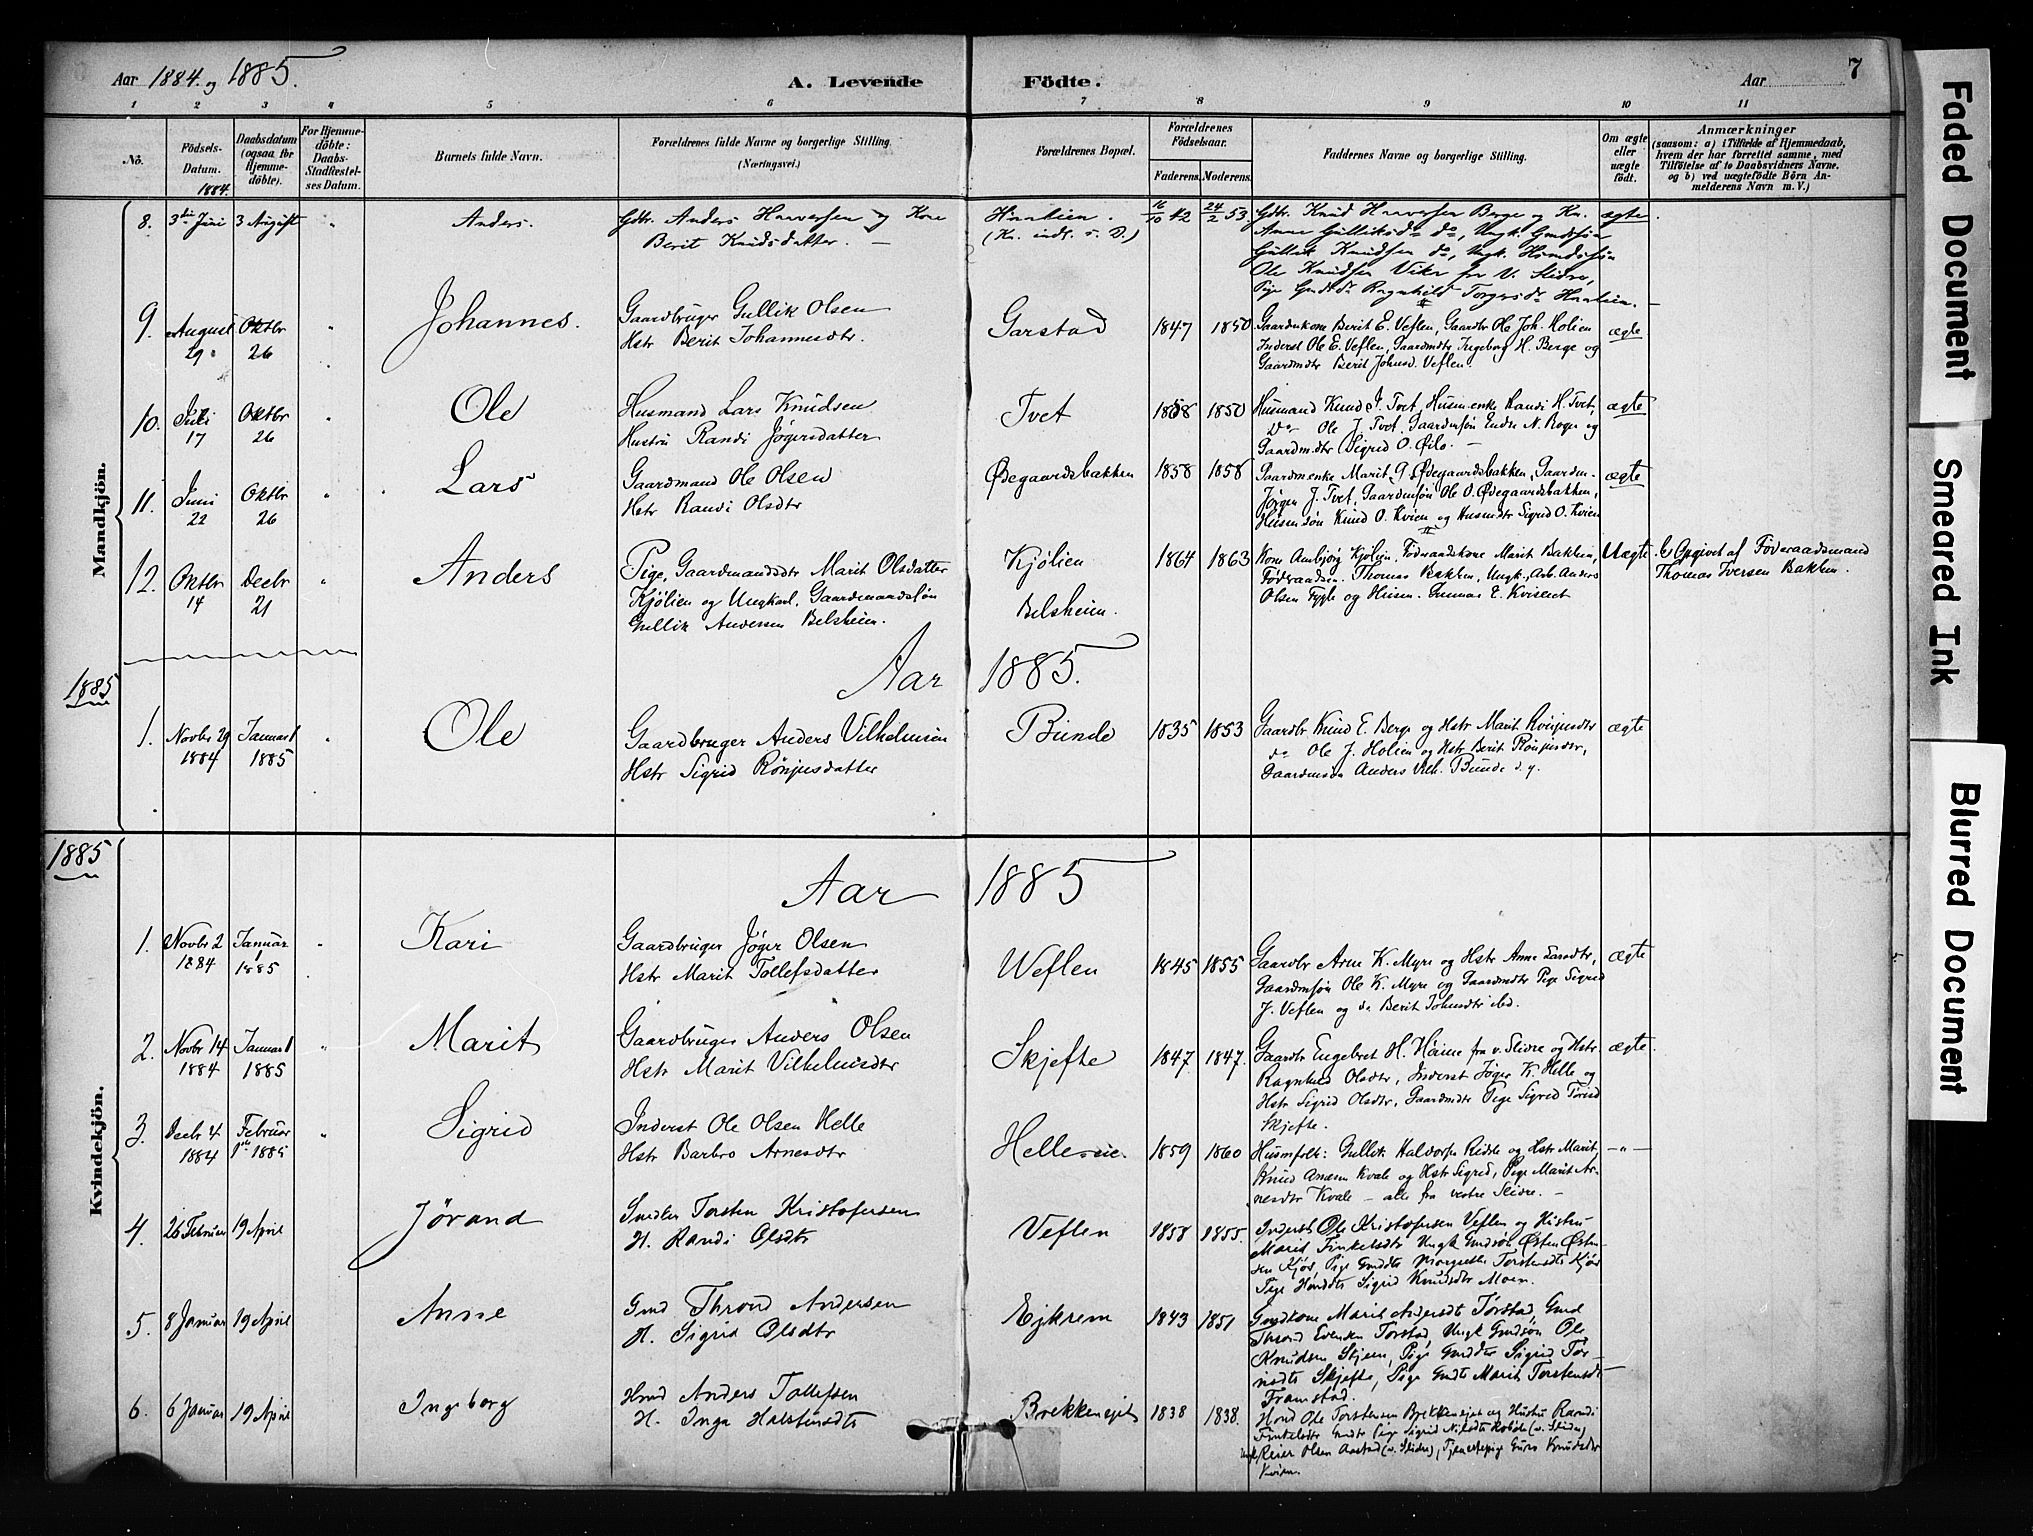 Aar 1884. og 1885.
A. Levende Födte.
Aar 7
1 2 3 4 5 6 7 8 9 10 11
No.
Födsels-Datum.
1884.
Daabsdatum (ogsaa for Hjemme-döbte).
For Hjemme-döbte: Daabs-Stadfæstel-ses Datum.
Barnets fulde Navn.
Forældrenes fulde Navne og borgerlige Stilling.
(Næringsvei.)
Forældrenes Bopæl.
Forældrenes Födselsaar.
Faderens. Moderens.
Faddernes Navne og borgerlige Stilling.
Om ægte eller uægte födt.
Anmærkninger
(saasom: a) i Tilfælde af Hjemmedaab, hvem der har forrettet samme, med Tilföielse af to Daabsvidners Navne, og b) ved uægtefödte Börn An-melderens Navn m. V.)
Mandkjön.
8. 3die Juni 3 August " Anders.
Gdbr. Anders Haaversen og Kone
Berit Knudsdatter. —
Haalien.
(Kn. indl. s. D.)
16/10 42 24/2 53
Gdbr. Knud Haaversen Berge og Kn.
Anne Gulliksd. do, Ungk. Gmdssøn
Gullik Knudsen do, Ungk. Hsmdssøn
Ole Knudsen Vike fra V. Slidre,
Pige Gmdsd. Ragnhild Torgersd. Haalien. —
ægte
9. August 29 Oktbr 26 " Johannes.
Gaardbruger Gullik Olsen
Hstr Berit Johannesdtr.
Garstad 1847 1850
Gaardmkone Berit E. Veflen, Gaardbr Ole Joh. Holien
Inderst Ole E. Veflen, Gaardmdtr Ingeborg H. Berge og
Gaardmdtr Berit Johnsd. Veflen.
ægte
10. Juli 17 Oktbr 26 " Ole
Husmand Lars Knudsen
Hustru Randi Jøgersdatter
Tvet 1858 1850
Husmand Knud J. Tvet, Husmenke Randi H. Tvet,
Do Ole J. Tvet, Gaardmsøn Endre N. Roger og
Gaardmdtr Sigrid O. Øilo. —
ægte
11. Juni 22 Oktbr 26 " Lars
Gaardmand Ole Olsen
Hstr Randi Olsdtr
Ødegaardsbakken 1858 1858
Gaardmenke Marit G. Ødegaardsbakken, Gaardm.
Jørgen J. Tvet, Gaardmsøn Ole O. Ødegaardsbakken,
Husmsøn Knud O. Kvien og Husmdtr Sigrid O. Kvien
ægte
12. Oktbr 14 Decbr 21 " Anders
Pige, Gaardmandsdtr Marit Olsdatter
Kjølien og Ungkarl, Gaardmandssøn
Gullik Andersen Belsheim.
Kjølien
Belsheim.
1864 1863
Kone Ambjørg Kjølien, Føderaadskone Marit Bakken,
Føderaadsm. Thomas Bakken, Ungk., Arb. Anders
Olsen Fygle og Husm. Gunnar E. Kviseet
Uægte
Opgivet af Føderaadsmand
Thomas Iversen Bakken.
1885
Aar 1885.
1. Novbr 29 1884 Januar 1 1885 " Ole
Gaardbruger Anders Vilhelmsen
Hstr Sigrid Rønjusdatter
Bunde 1835 1853
Gaardbr Knud E. Berge og Hstr Marit Rønjusdtr
do Ole J. Holien og Hstr Berit Rønjusdtr,
Gaardmsøn Anders Vilh. Bunde d. y.
ægte
1885
Kvindekjön.
Aar 1885
1. Novbr 2 1884 Januar 1 1885 " Kari
Gaardbruger Jøger Olsen
Hstr Marit Tollefsdatter
Weflen 1845 1855
Gaardbr Arne K. Myre og Hstr Anne Larsdtr,
Gaardmsøn Ole K. Myre og Gaardmdtr Pige Sigrid
J. Veflen og do Berit Johnsdtr ibd.
ægte
2. Novbr 14 1884 Januar 1 1885 " Marit
Gaardbruger Anders Olsen
Hstr Marit Vilhelmsdtr
Skjefte 1847 1847.
Gaardbr Engebret H. Høime fra v. Slidre og Hstr
Ragnhild Olsdtr, Inderst Jøger K. Helle og
Hstr Sigrid Olsdtr, Gaardmdtr Pige Sigrid Tørisd
Skjefte.
ægte
3. Decbr 4 1884 Februar 1ste 1885 " Sigrid
Inderst Ole Olsen Helle
Hstr Barbro Arnesdtr
Helle-eie. 1859 1860
Husmfolk: Gullik Haldorsen Ridste og Hstr Marit,
Knud Andsen Kvale og Hstr Sigrid, Pige Marit Ar-
nesdtr Kvale — alle fra vestre Slidre. —
—"—
4. 26 Februar 19 April Jørand
Smdbr Torsten Kristofersen
H. Randi Olsdtr
Veflen 1858 1855.
Inderst Ole Kristofersen Veflen og Hustru
Marit Finkelsdtr Ungk Gmdsøn Østen Østen-
sen Kjøs, Pige Gmddtr Margrethe Torstensdtr Kjøs
Pige Hsmddtr Sigrid Knudsdtr Moen.
5. 8 Januar 19 April Anne
Gmd Thrond Andersen
H. Sigrid Olsdtr
Ejkrem 1843 1851
Gmdkone Marit Andersdtr Tørstad, Gmd
Thrond Evensen Tørstad, Ungk Gmdsøn Ole
Knudsen Skjeen, Pige Gmddtr Sigrid Tør-
risdtr Skjefte, Pige Gmdtr Marit Torstensdtr
Framstad.
6. 6 Januar 19 April Ingeborg
Hmd Anders Tollefsen
H. Inga Halstensdtr
Brekkenejet 1838 1838.
Hsmd Ole Torstensen Brekkenejet og Hustru Randi
Finkelsdtr Gmdtr Pige Sigrid Nilsdtr Robøle (v. Slidre)
Ungk Reier Olsen Aastad (v. Slidre), Tjenestepige Guro Knudsdtr
Kvien.
Faded Document
Smeared Ink
Blurred Document